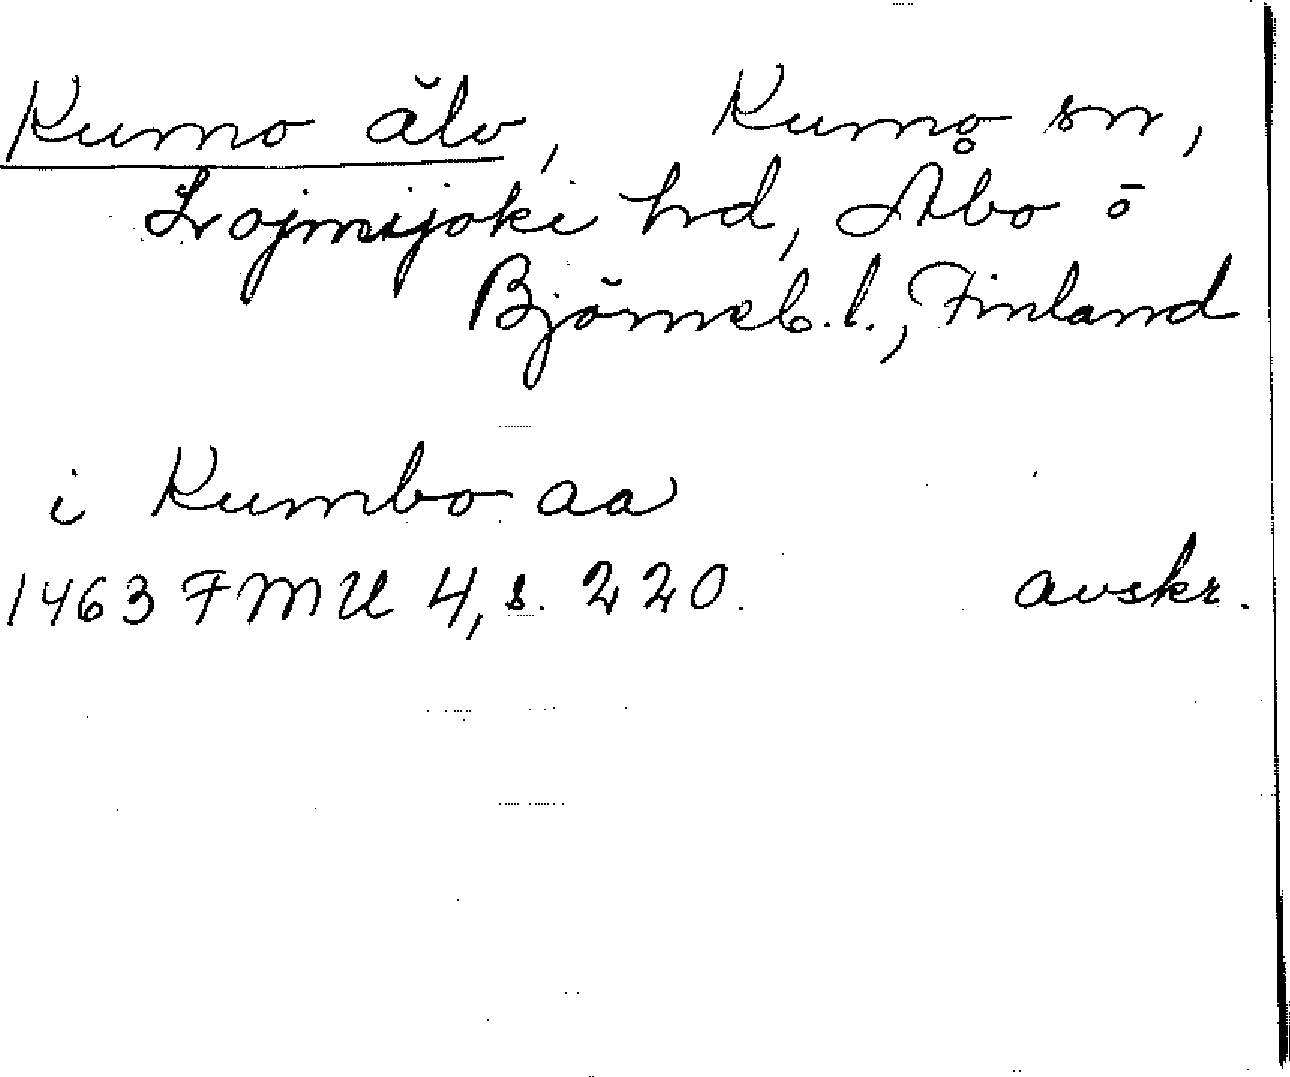 Kumo älv, Kumo sn,
Lojmijoki hd, Åbo o
Björneb. l., Finland
i Kumbo aa
1463 FMU 4, s. 220. avskr.